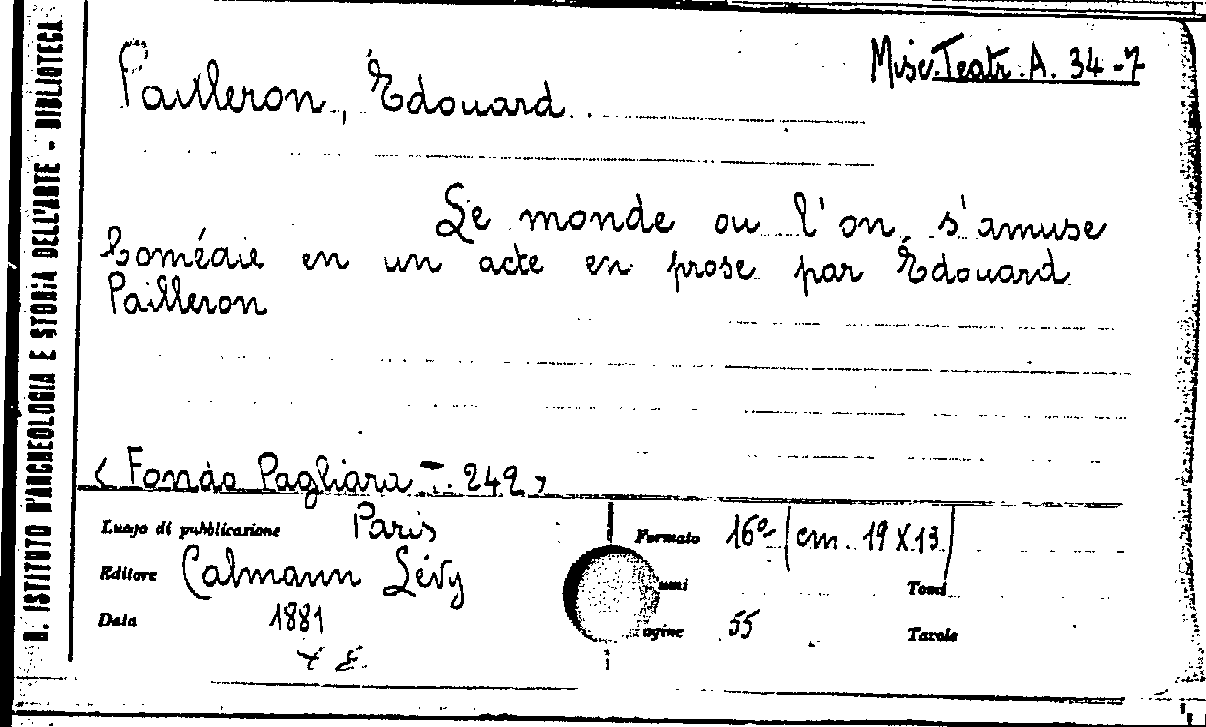 R. ISTITUTO D'ARCHEOLOGIA E STORIA DELL'ARTE - BIBLIOTECA
Misc. Teatr. A. 34-7
Pailleron, Edouard
Le monde ou l'on s'amuse
Comédie en un acte en prose par Edouard
Pailleron
< Fondo Pagliara I. 242 >
Luogo di pubblicazione Paris Formato 16º (cm. 19 X 13)
Editore Calmann Lévy umi Tomi
Data 1881 agine 55 Tavole